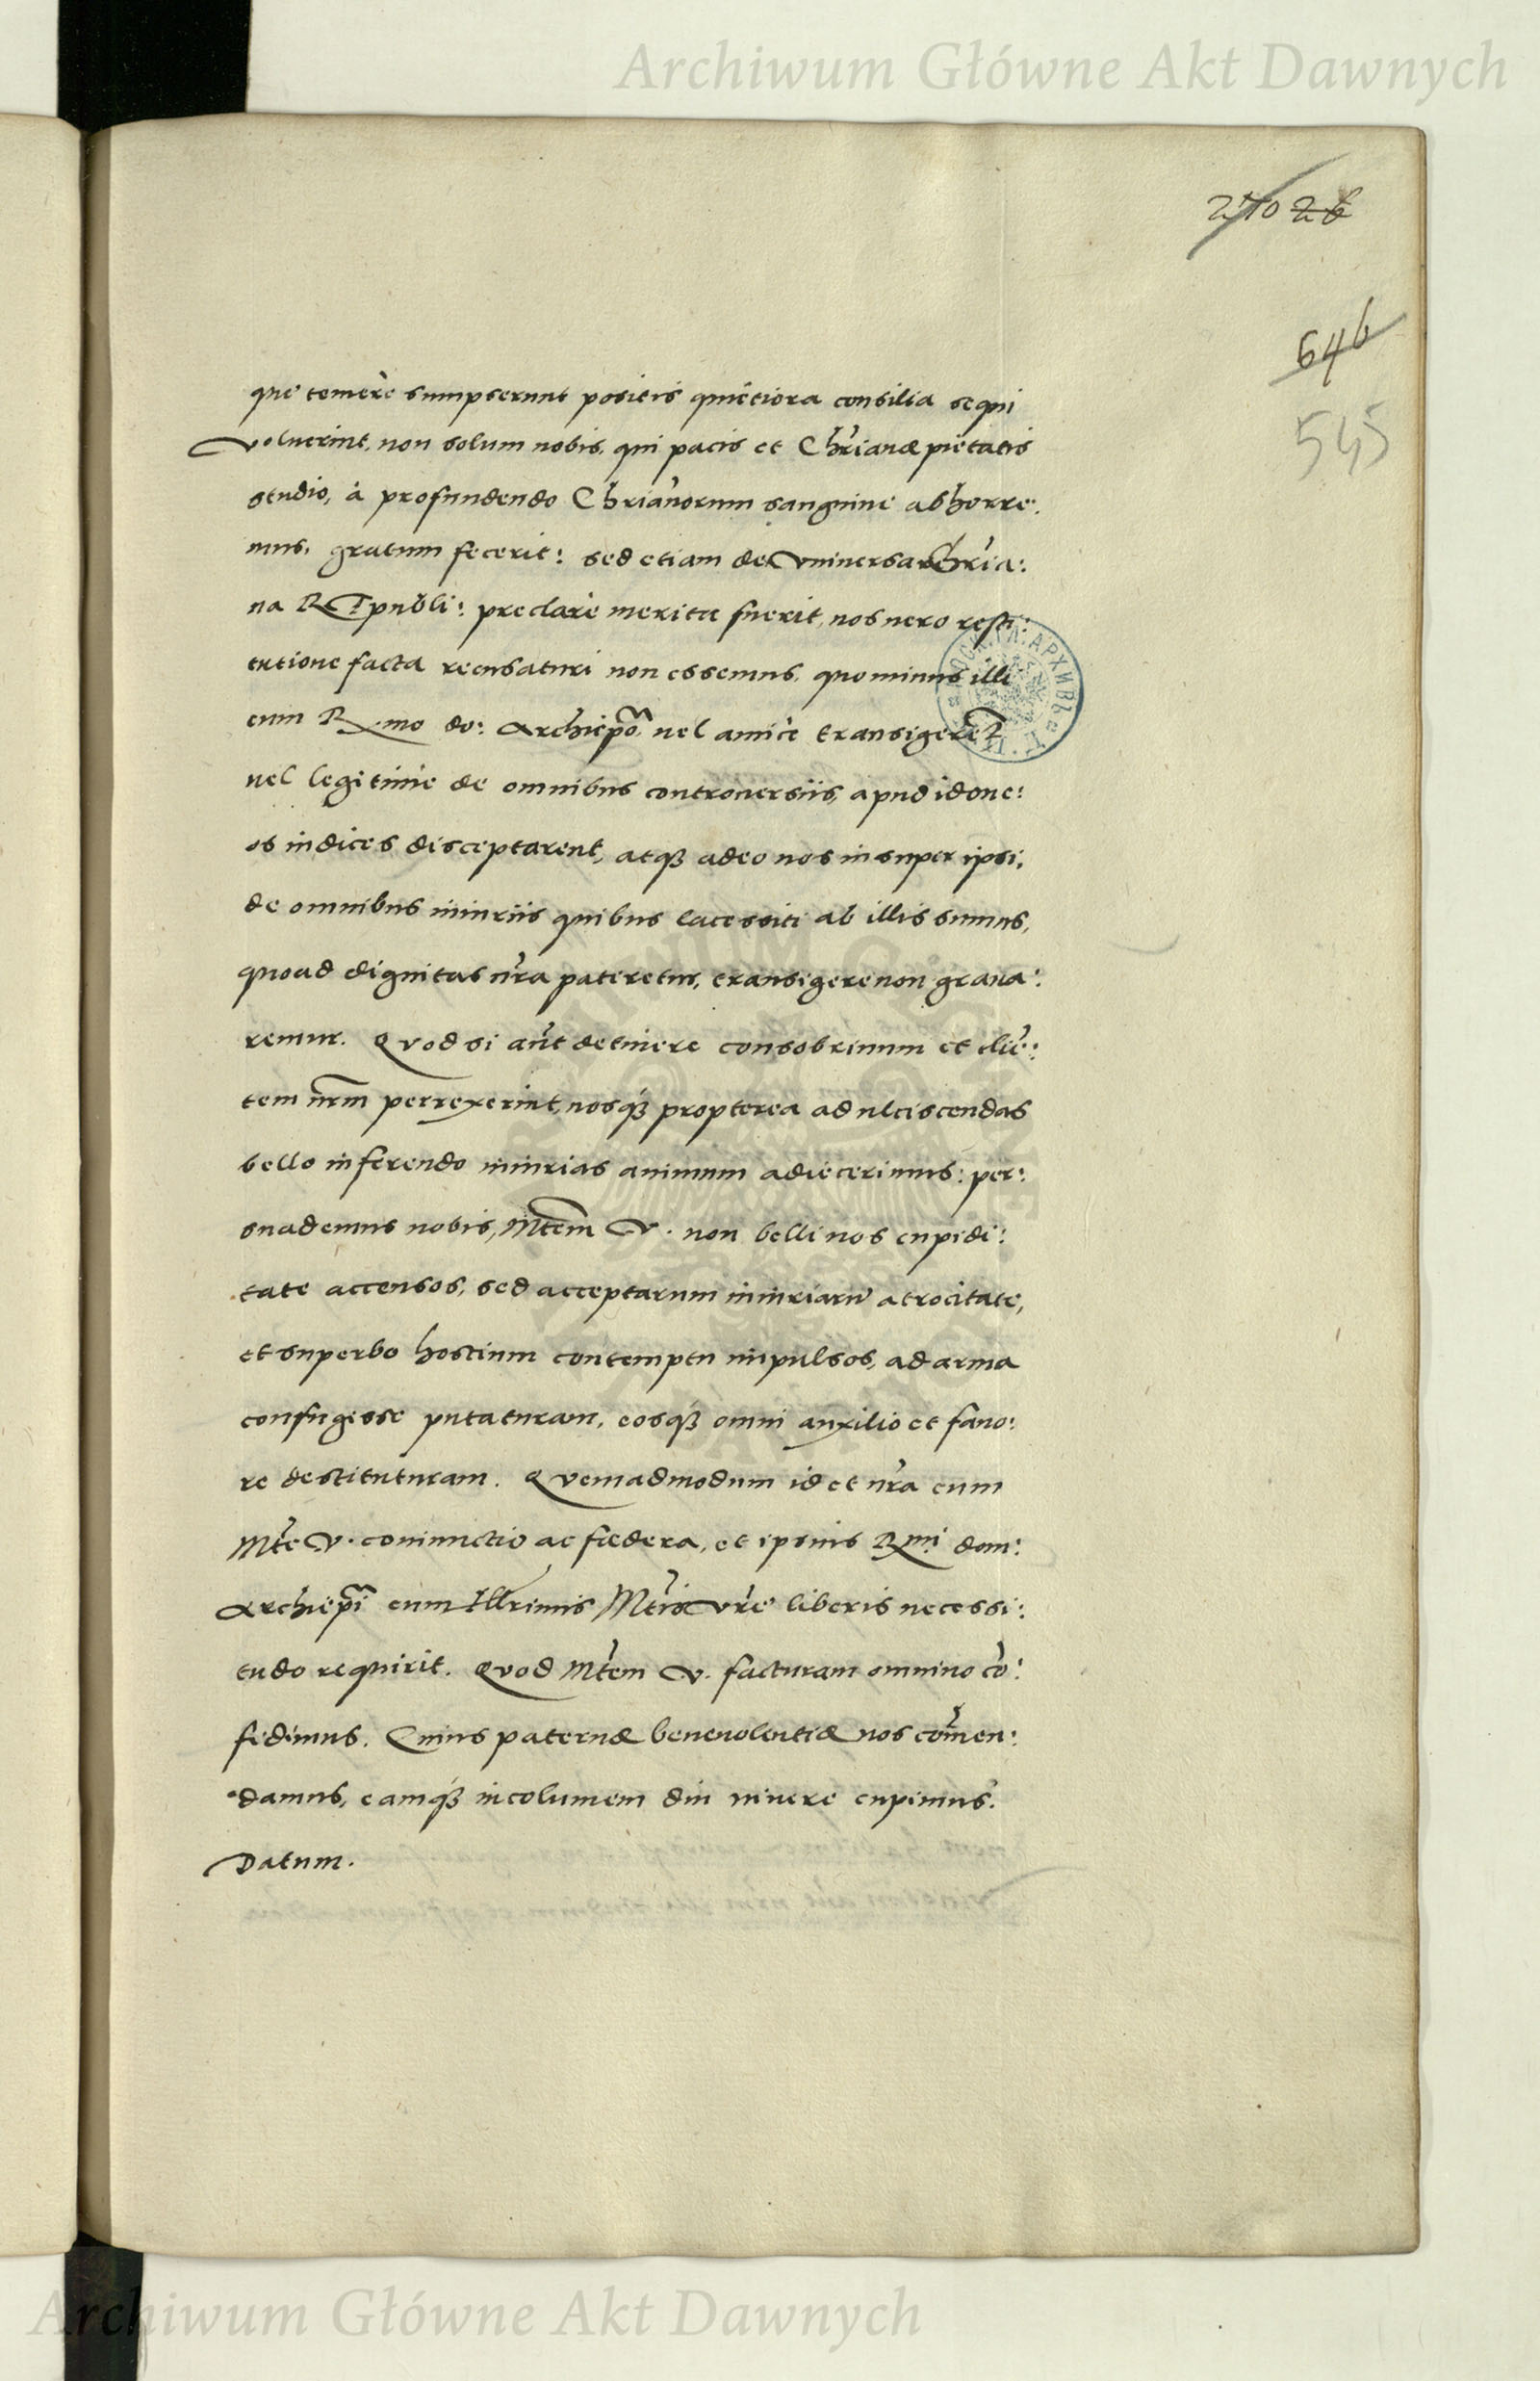 Archiwum Główne Akt Dawnych
2710 26
646
545
que temerè sumpserunt positis quiëtiora consilia sequi
Voluerint, non solum nobis, qui pacis et Chr̃ianæ piëtatis
studio, à profundendo Chrianõrum sanguine abhorre:
mus, gratum fecerit: sed etiam de Vniuersa Chr̃ia:
na RTpubli: preclarè merita fuerit, nos uero resti:
tutione facta recusaturi non essemus, quo minus illi
cum R.mo do: Archiepõ, uel amicè transigerẽt
uel legitimè de omnibus controuersiis, apud idone:
os iudices disceptarent, atq̃ adeo nos insuper ipsi,
de omnibus iniuriis quibus lacessiti ab illis sumus,
quoad dignitas nr̃a pateretur, transigere non graua:
remur. Quod si aũt detinere consobrinum et cliẽ:
tem nr̃m perrexerint, nosq̃ propterea ad ulciscendas
bello inferendo iniurias animum adiecerimus: per:
suademus nobis, Mtem V. non belli nos cupidi:
tate accensos, sed acceptarum iniuriarũ atrocitate,
et superbo hostium contemptu impulsos, ad arma
confugisse putaturam, eosq̃ omni auxilio et fauo:
re destituturam. Quemadmodum id et nr̃a cum
Mte V. coniunctio ac fœdera, et ipsius Rmi dom:
Archiepĩ cum Illrimis Mtis Vrẽ liberis necessi:
tudo requirit. Quod Mtem V. facturam omnino cõ:
fidimus. Cuius paternæ beneuolentiæ nos com̃en:
damus, eamq̃ incolumem diu uiuere cupimus.
Datum.
Archiwum Główne Akt Dawnych